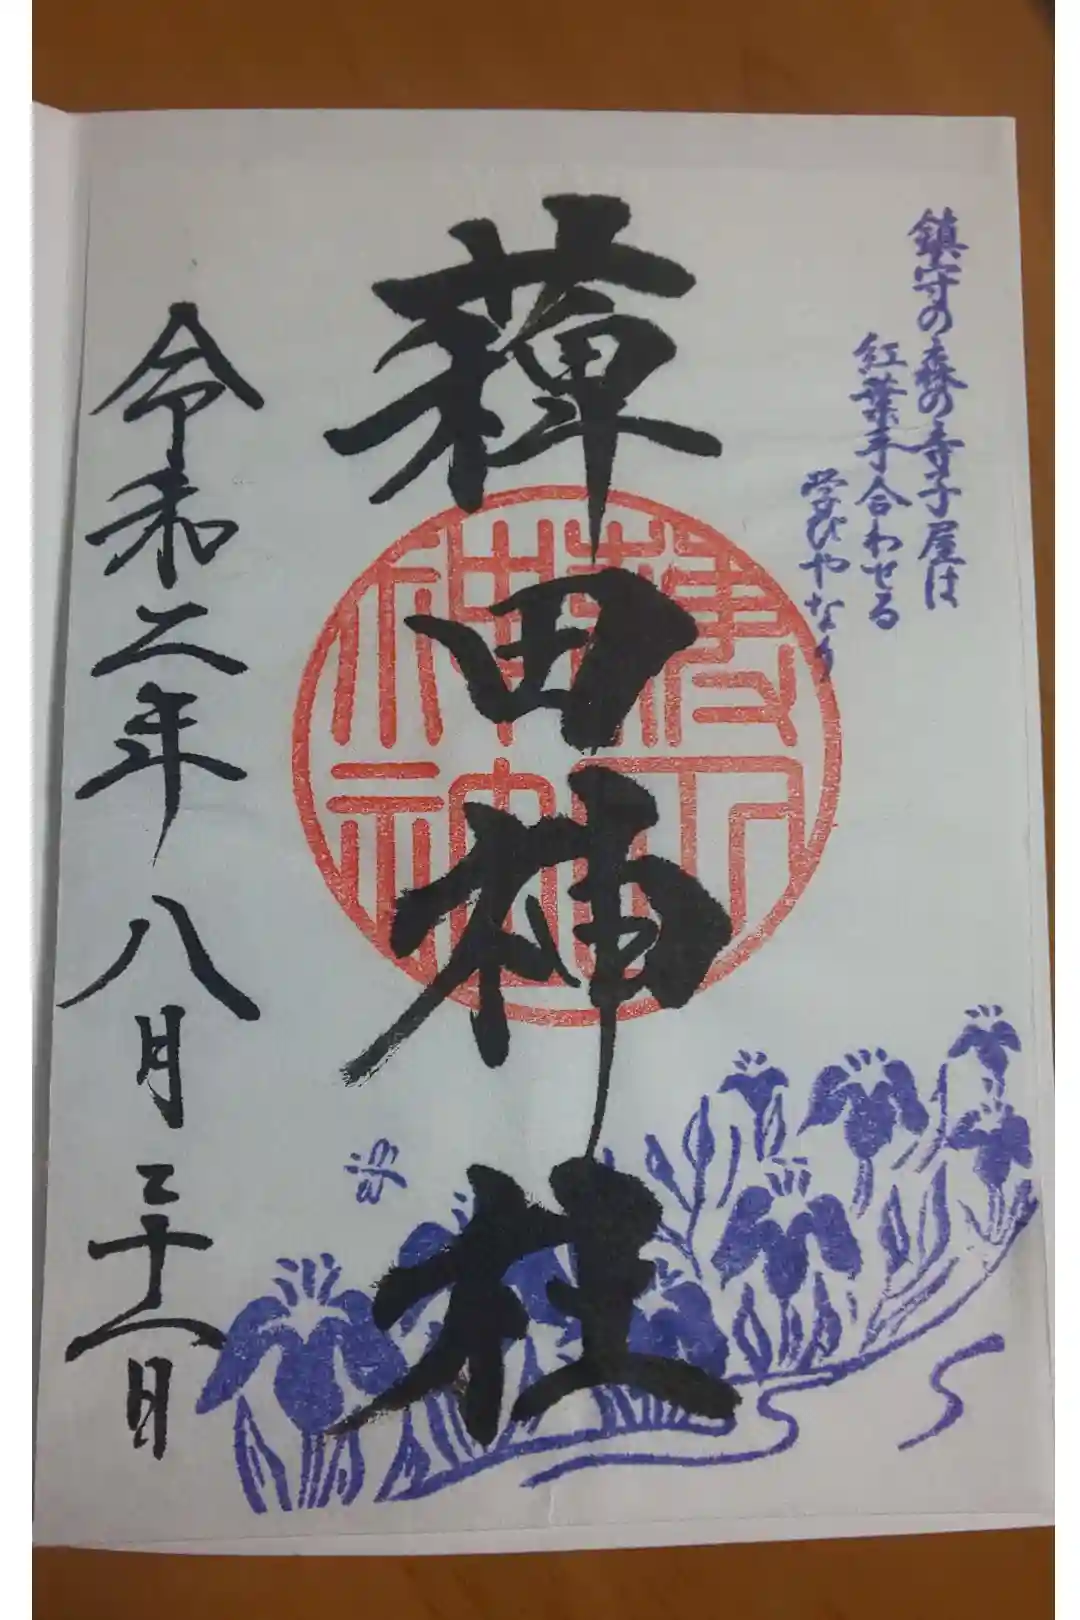 鎮守の森の寺子屋は
紅葉手合わせる
学びやなり
薭田神社
令和二年八月二十八日